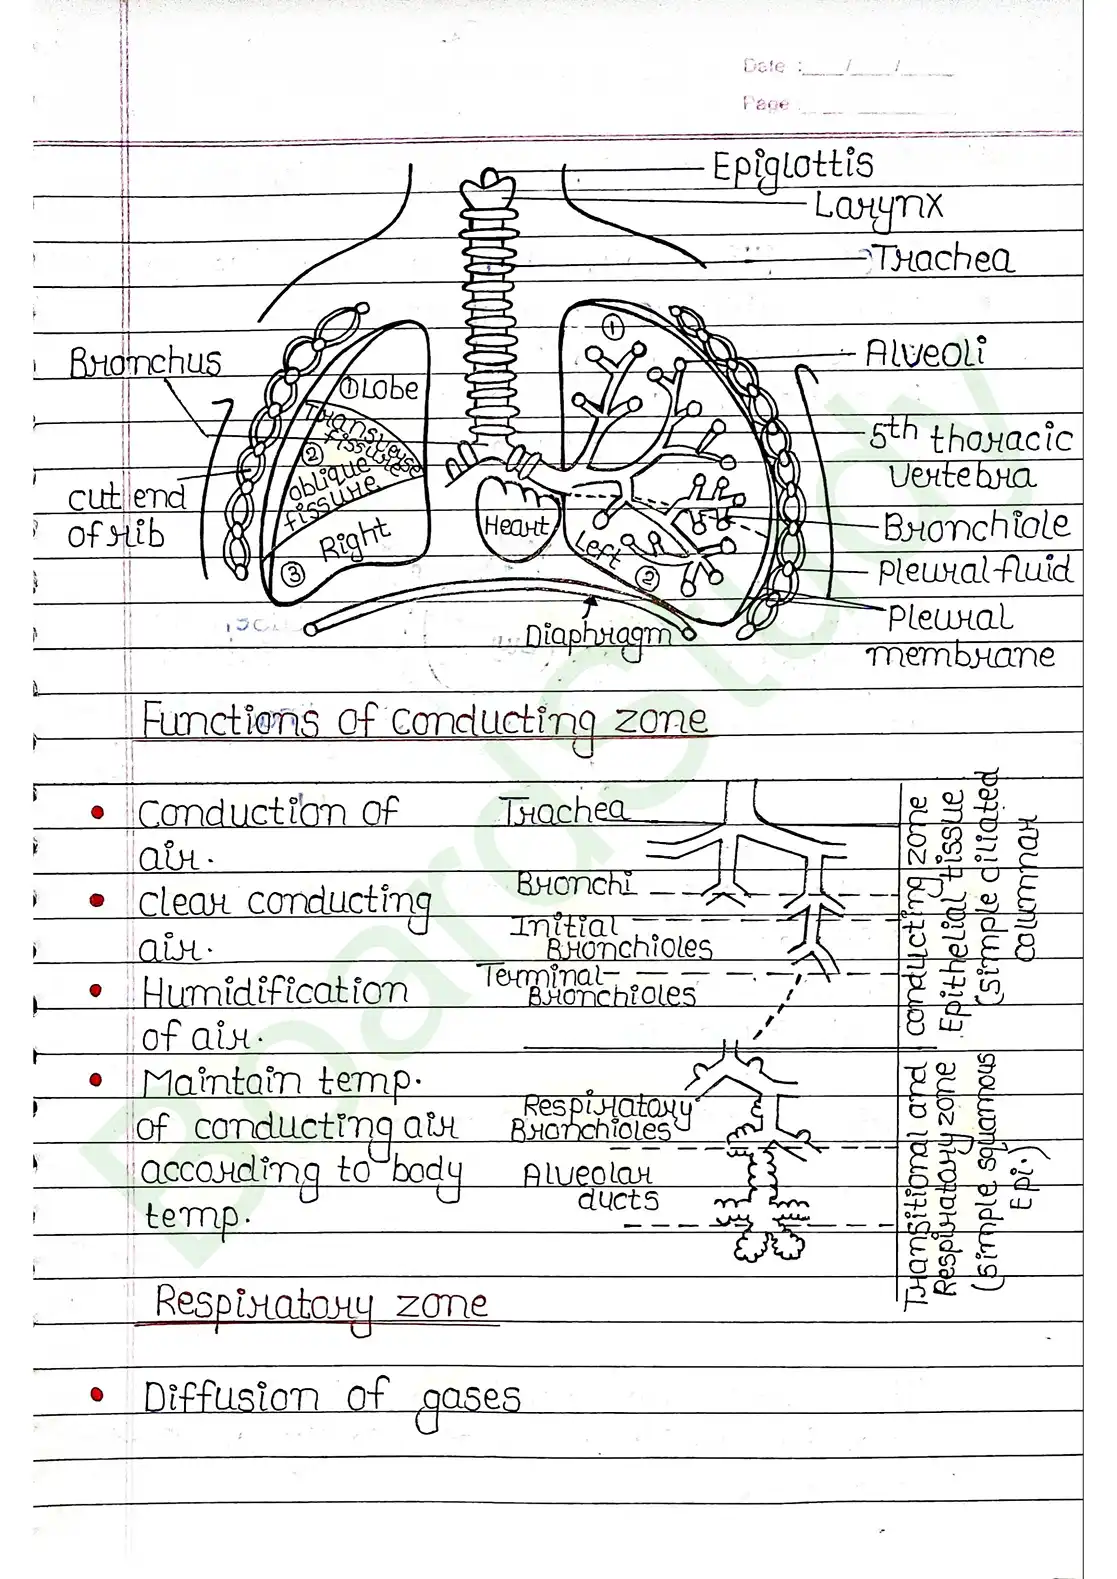 Date : ___/___/___
Page :
Epiglottis
Larynx
Trachea
Bronchus
Alveoli
① Lobe
Transverse
fissure
②
oblique
fissure
Right
③
①
5th thoracic
vertebra
cut end
of rib
Heart
Left
②
Bronchiole
Pleural fluid
Pleural
membrane
Diaphragm
Functions of conducting zone
• Conduction of
air.
• clear conducting
air.
• Humidification
of air.
• Maintain temp.
of conducting air
according to body
temp.
Trachea
Bronchi
Initial
Bronchioles
Terminal
Bronchioles
Respiratory
Bronchioles
Alveolar
ducts
conducting zone
Epithelial tissue
(simple ciliated
columnar
Transitional and
Respiratory zone
(simple squamous
Epi.)
Respiratory zone
• Diffusion of gases
BoardStudy